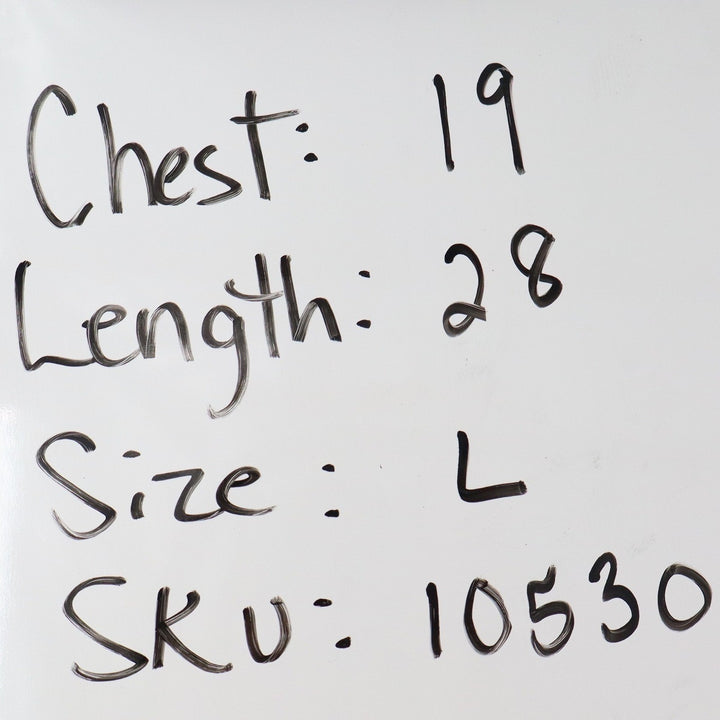 Chest: 19
Length: 28
Size: L
SKU: 10530